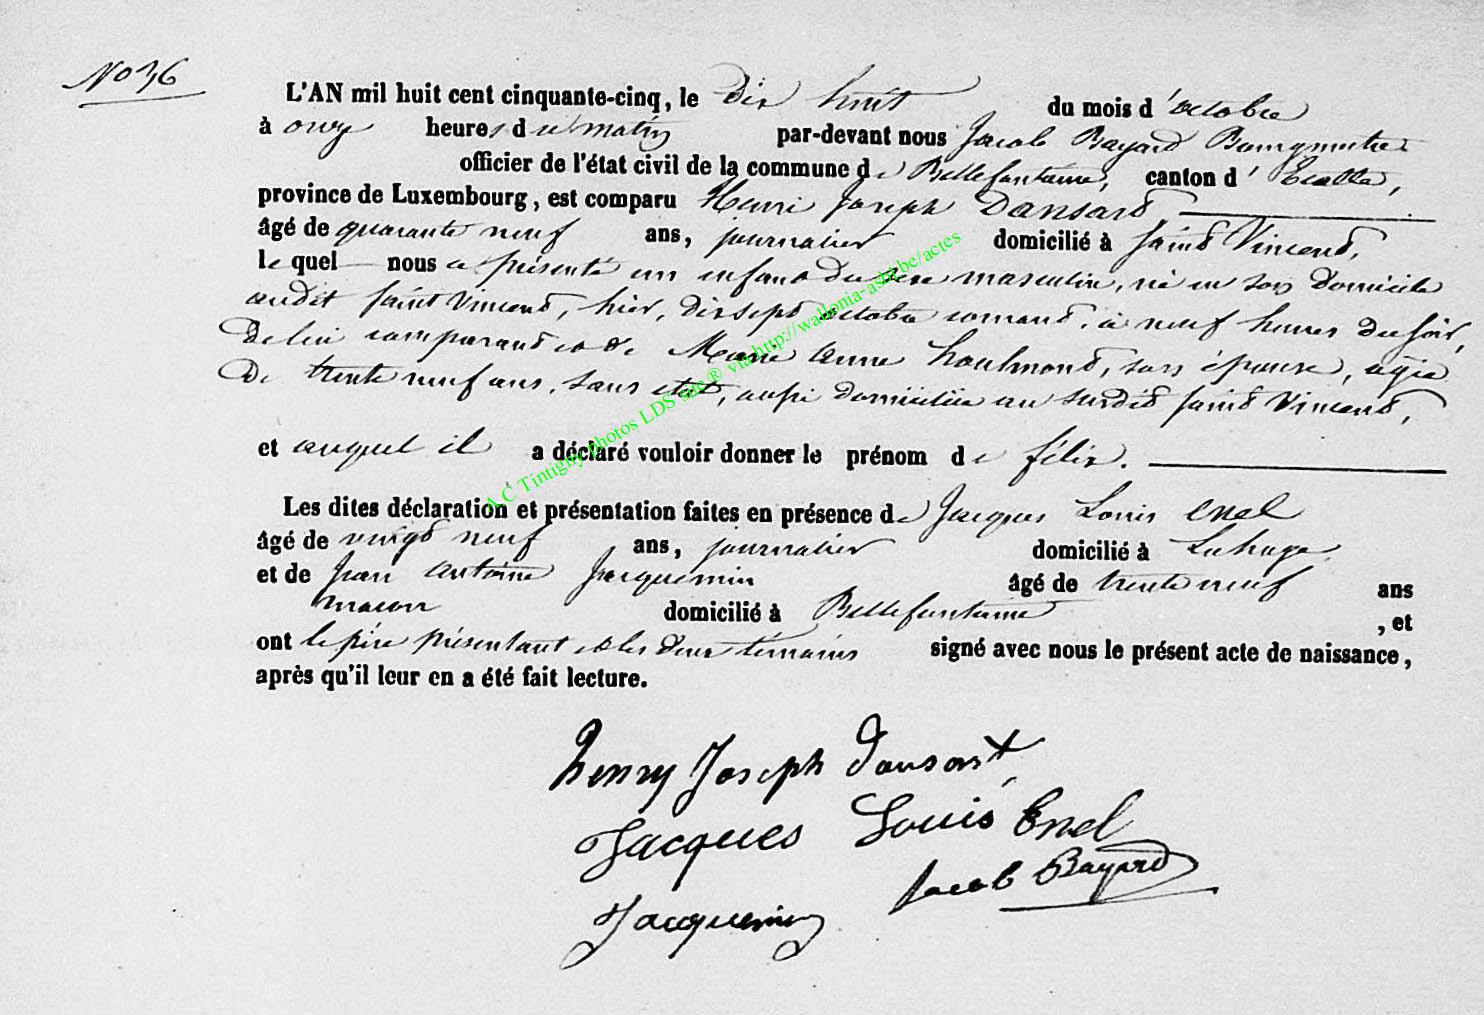 No 36
L'AN mil huit cent cinquante-cinq, le dix huit du mois d'octobre
à onze heures du matin par-devant nous Jacob Bayard Bourgmestre
officier de l'état civil de la commune de Bellefontaine, canton d'Etalle,
province de Luxembourg, est comparu Henri Joseph Dansard,
âgé de quarante neuf ans, journalier domicilié à Saint Vincent,
lequel nous a présenté un enfant du sexe masculin, né en son domicile
audit Saint Vincent, hier, dix sept octobre courant, à neuf heures du soir,
de lui comparant et de Marie Anne houlmont, son épouse, agée
de trente neuf ans, sans état, aussi domiciliée au susdit Saint Vincent,
et auquel il a déclaré vouloir donner le prénom de félix.
Les dites déclaration et présentation faites en présence de Jacques Louis Enel
âgé de vingt neuf ans, journalier domicilié à Lahage
et de Jean Antoine Jacquemin âgé de trente neuf ans
macon domicilié à Bellefontaine, et
ont le père présentant et les deux témoins signé avec nous le présent acte de naissance,
après qu'il leur en a été fait lecture.
henry Joseph dansart
Jacques Louis Enel
Jacob Bayard
Jacquemin
A.C Tintigny photos LDS sal ® via http://wallonia-asbl.be/actes